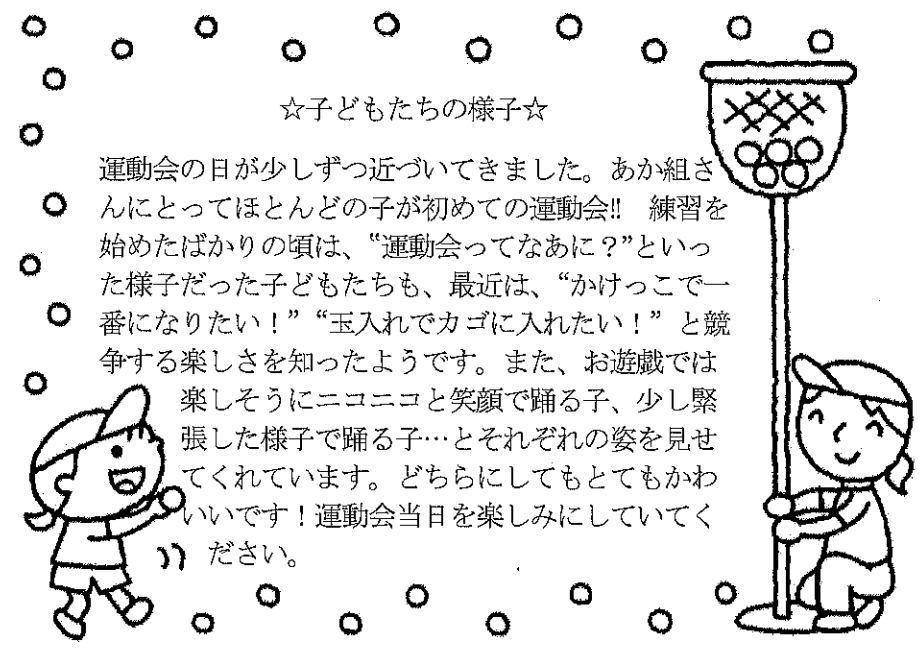 ☆子どもたちの様子☆
運動会の日が少しずつ近づいてきました。あか組さ
んにとってほとんどの子が初めての運動会!! 練習を
始めたばかりの頃は、“運動会ってなあに？”といっ
た様子だった子どもたちも、最近は、“かけっこで一
番になりたい！”“玉入れでカゴに入れたい！”と競
争する楽しさを知ったようです。また、お遊戯では
楽しそうにニコニコと笑顔で踊る子、少し緊
張した様子で踊る子…とそれぞれの姿を見せ
てくれています。どちらにしてもとてもかわ
いいです！運動会当日を楽しみにしていてく
ださい。